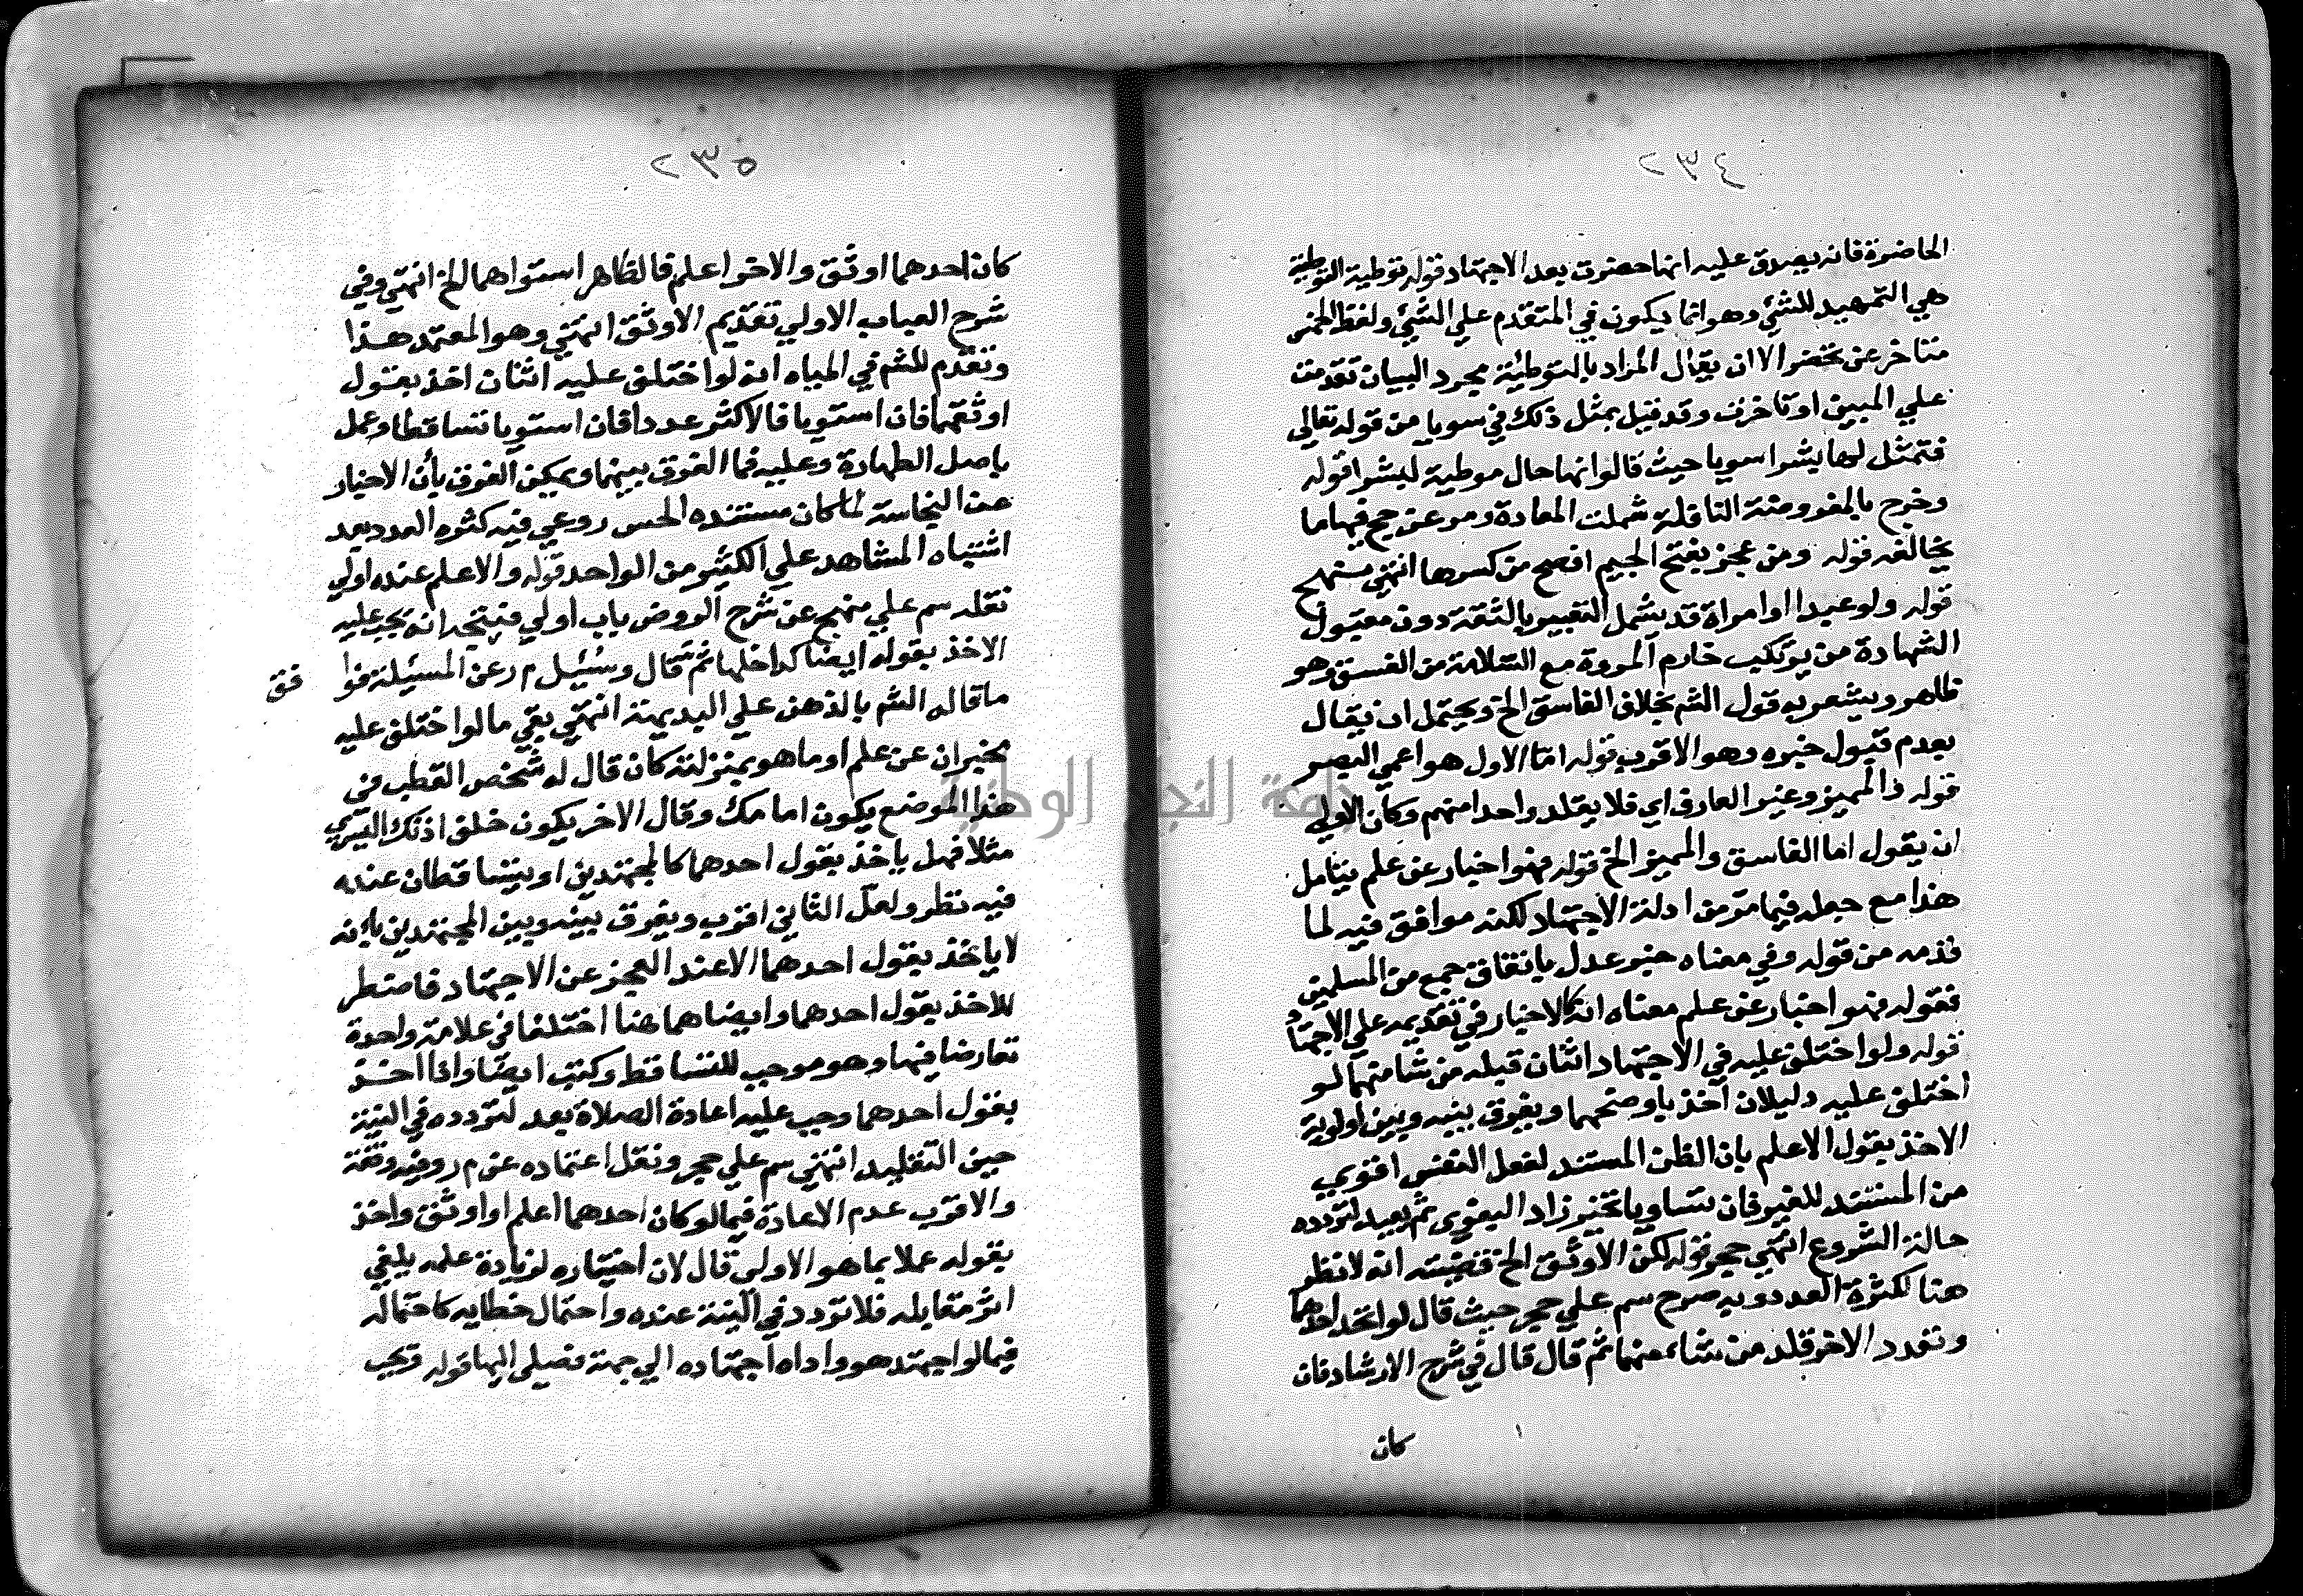 ٢٣٤
الحاضرة فانه يصدق عليه انها حضرت بعد الاجتهاد قوله توطية التوطية
هي التمهيد للشيء وهو انما يكون في المتقدم علي الشيء ولفظ الخمس
متاخر عن تحضر الا ان يقال المراد بالتوطية مجرد البيان تقدمت
علي المبين او تاخرت وقد قيل بمثل ذلك في سويا من قوله تعالي
فتمثل لها بشرا سويا حيث قالوا انها حال موطية لبشرا قوله
وخرج بالمفروضة النافلة شملت المعادة ومر عن حج فيها ما
يخالفه قوله ومن عجز بفتح الجيم افصح من كسرها انتهي منهج
قوله ولو عبدا او امراة قد يشمل التعبير بالثقة دون مقبول
الشهادة من يرتكب خارم المروة مع السلامة من الفسق وهو
ظاهر ويشعر به قول الشم بخلاف الفاسق الخ ويحتمل ان يقال
بعدم قبول خبره وهو الاقرب قوله اما الاول هو اعمي البصر
قوله فالمميز وغير العارف اي فلا يقلد واحدا منهم وكان الاولي
ان يقول اما الفاسق والمميز الخ قوله فهو اخبار عن علم يتامل
هذا مع جعله فيما مر من ادلة الاجتهاد لكنه موافق فيه لما
قدمه من قوله وفي معناه خبر عدل باتفاق جمع من المسلمين
فقوله فهو اخبار عن علم معناه انه كالاخبار في تقديمه علي الاجتهاد
قوله ولو اختلف عليه في الاجتهاد اثنان قبله من شا منهما لو
اختلف عليه دليلان اخذ باوضحهما ويفرق بينه وبين اولوية
الاخذ بقول الاعلم بان الظن المستند لفعل النفس اقوي
من المستند للغير فان تساويا تخير زاد البغوي ثم يعيد لتردده
حالة الشروع انتهي حجر قوله لكن الاوثق الخ قضيته انه لا نظر
هنا لكثرة العدد وبه صرح سم علي حجر حيث قال لو اتحد احدهما
وتعدد الاخر قلد من شاء منهما ثم قال قال في شرح الارشاد فان
كان
٢٣٥
كان احدهما اوثق والاخر اعلم فالظاهر استواهما الخ انتهي وفي
شرح العباب الاولي تقديم الاوثق انتهي وهو المعتمد هذا
وتقدم للشم في المياه انه لو اختلف عليه اثنان اخذ بقول
اوثقهما فان استويا فالاكثر عددا فان استويا تساقطا وعمل
باصل الطهارة وعليه فما الفرق بينهما ويمكن الفرق بأن الاخبار
عن النجاسة لما كان مستنده الحس روعي فيه كثرة العدد بعد
اشتباه المشاهد علي الكثير من الواحد قوله والاعلم عنده اولي
نقله سم علي منهج عن شرح الروض باب اولي فيتجه انه يجب عليه
الاخذ بقوله ايضا كداخلها ثم قال وسئيل م ر عن المسئيلة فوا فق
ما قاله الشم بالذهن علي البديهة انتهي بقي ما لو اختلف عليه
مخبران عن علم او ما هو بمنزلته كان قال له شخص القطب في
هذا الموضع يكون امامك وقال الاخر يكون خلف اذنك اليسري
مثلا فهل ياخذ بقول احدهما كالمجتهدين او يتساقطان عنده
فيه نظر ولعل الثاني اقرب ويفرق بينه وبين المجتهدين بانه
لا ياخذ بقول احدهما الا عند العجز عن الاجتهاد فاضطر
للاخذ بقول احدهما وايضا هما هنا اختلفا في علامة واحدة
تعارضا فيها وهو موجب للتساقط وكتب ايضا واذا اخذ
بقول احدهما وجب عليه اعادة الصلاة بعد لتردده في النية
حين التقليد انتهي سم علي حجر ونقل اعتماده عن م ر وفيه وقفة
والاقرب عدم الاعادة فيما لو كان احدهما اعلم او اوثق واخذ
بقوله عملا بما هو الاولي قال لان اختياره لزيادة علمه يلغي
اثر مقابله فلا تردد في النية عنده واحتمال خطايه كاحتماله
فيما لو اجتهد هو واداه اجتهاده الي جهة فصلي اليها قوله ويجب
جامعة النجاح الوطنية